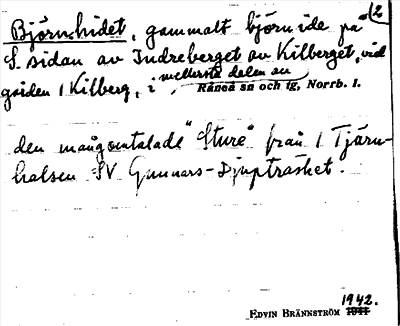 Björnhidet, gammalt björnide på 12
S. sidan av Indreberget av Kilberget, vid
gården 1 Kilberg, i mellersta delen av
Råneå sn och tg, Norrb. l.
den mångomtalade "Sture" från 1 Tjärn-
halsen SV Gunnars-Djupträsket.
1942.
EDVIN BRÄNNSTRÖM 1941